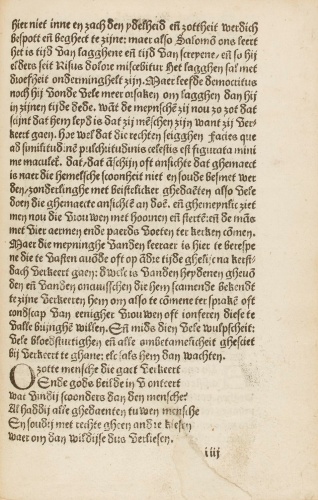 hier niet inne en zach den ydelheid eñ zottheit werdich
bespott eñ beghect te zijne: maer also Salomõ ons leert
het is tijd van lagghene eñ tijd van screyene/ eñ so hij
elders seit Risus dolore miscebitur het lagghen sal met
droefheit onderminghelt zijn. Maer leefde democritus
noch hij vonde vele meer oirsaken om lagghen dan hij
in zijnen tijde dede. wãt de meynschẽ zij nou zo zot dat
scijnt dat hem leyd is dat zij mẽschen zijn want zij ver-
keert gaen. Hoe wel dat die rechten seigghen facies que
ad similitudinẽ pulchritudinis celestis est figurata mini
me maculeẽ. dat/ dat ãschijn oft ansichte dat ghemaect
is naer die hemelsche scoonheit niet en soude besmet wer
den/zonderlinghe met beistelicker ghedaẽten/ also vele
doen die ghemaecte ansichtẽ an doẽ. eñ ghemeynlic ziet
men nou die vrouwen met hoornen eñ stertẽ: eñ de mãs
met vier aermen ende paerds voeten ter kerken cõmen.
Maer die meyninghe vanden leeraer is hier te berespe
ne die te vasten auõde oft op ãdre tijde ghelijc na kersti-
dach verkeert gaen:
een die hem scamende bekent
te zijne verkeeren hem om also te cõmene ter sprake oft
condscap van eenigher vrouwen oft ionferen diese te
valle bijnghẽ willen. Eñ mids dien vele wulpscheit:
vele bloedsturtighen eñ alle onbetamelicheit ghesciet
bij verkeert te ghane: elc saks hem dan wachten.
O zotte mensche die gaet verkeert
Ende gods beilde in v onteert
wat vindij scoonders dan den mensche?
Al haddij alle ghedaenten tuwen mensche
En soudij met rechte gheen andre kiesen
waer om dan wildijse dus verliesen.
iiij